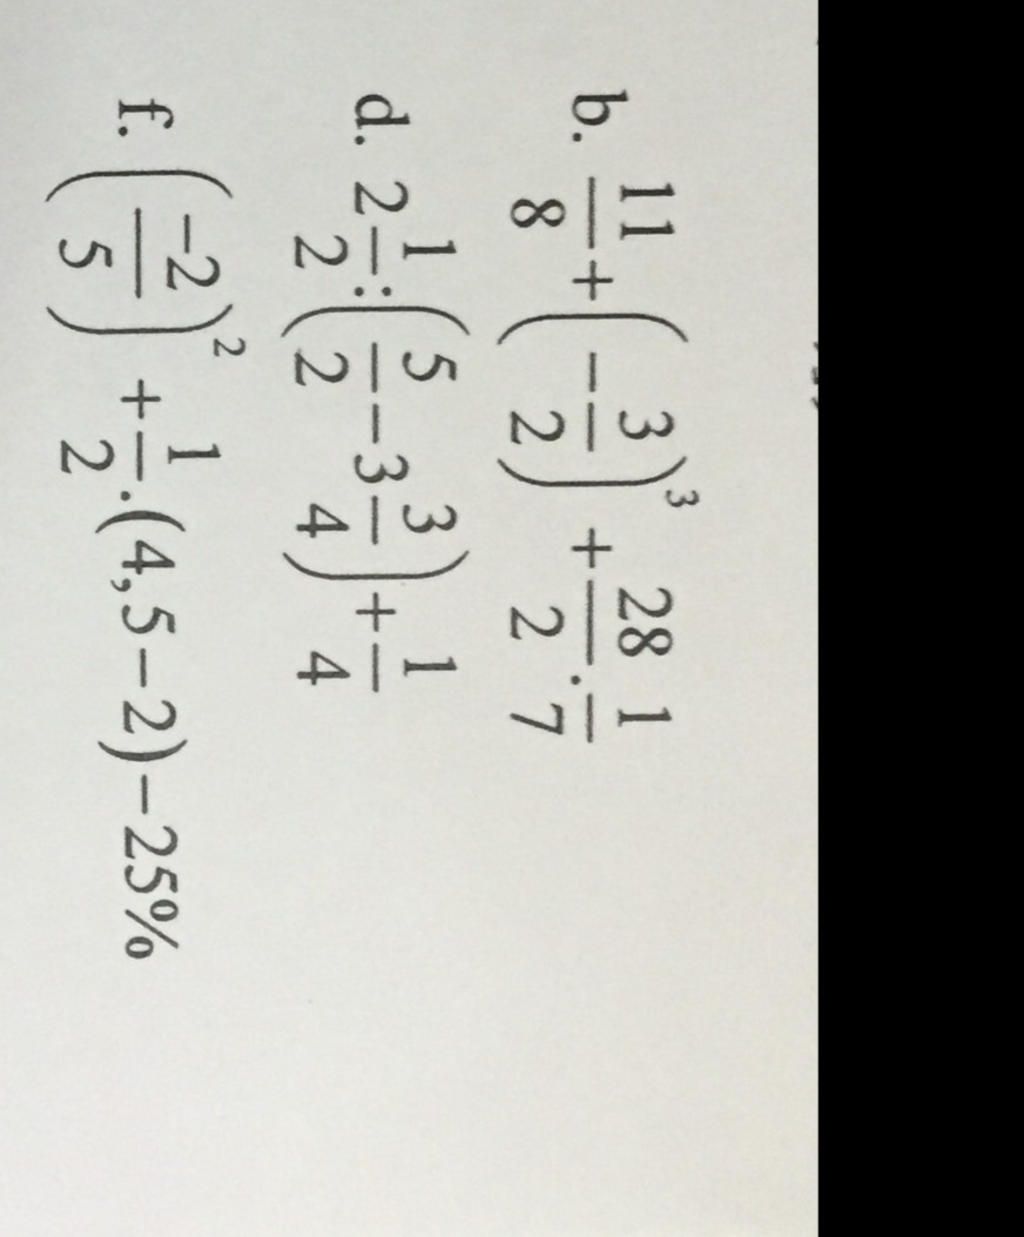 b. 11/8 + (−3/2)³ + 28/2 . 1/7
d. 2 1/2 : (5/2 − 3 3/4) + 1/4
f. (−2/5)² + 1/2 . (4,5 − 2) − 25%